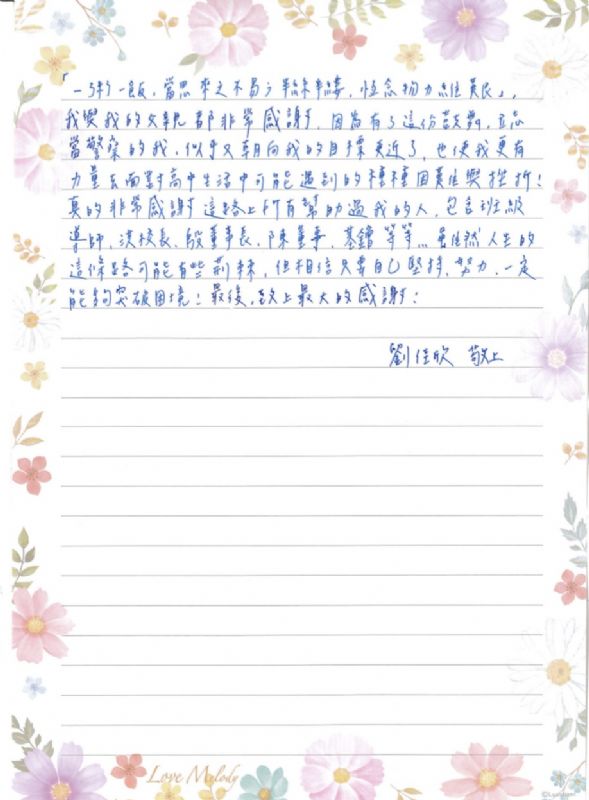 「一粥一飯，當思來之不易；半絲半縷，恆念物力維艱」，
我與我的父親都非常感謝，因為有了這份鼓舞，立志
當警察的我，似乎又朝向我的目標更近了，也使我更有
力量去面對高中生活中可能遇到的種種困難與挫折！
真的非常感謝這路上所有幫助過我的人，包含班級
導師、洪校長、殷董事長、陳董事、基鐘等等…雖然人生的
這條路可能有些荊棘，但相信只要自己堅持、努力，一定
能夠突破困境！最後，致上最大的感謝！
劉佳欣 敬上
Love Melody